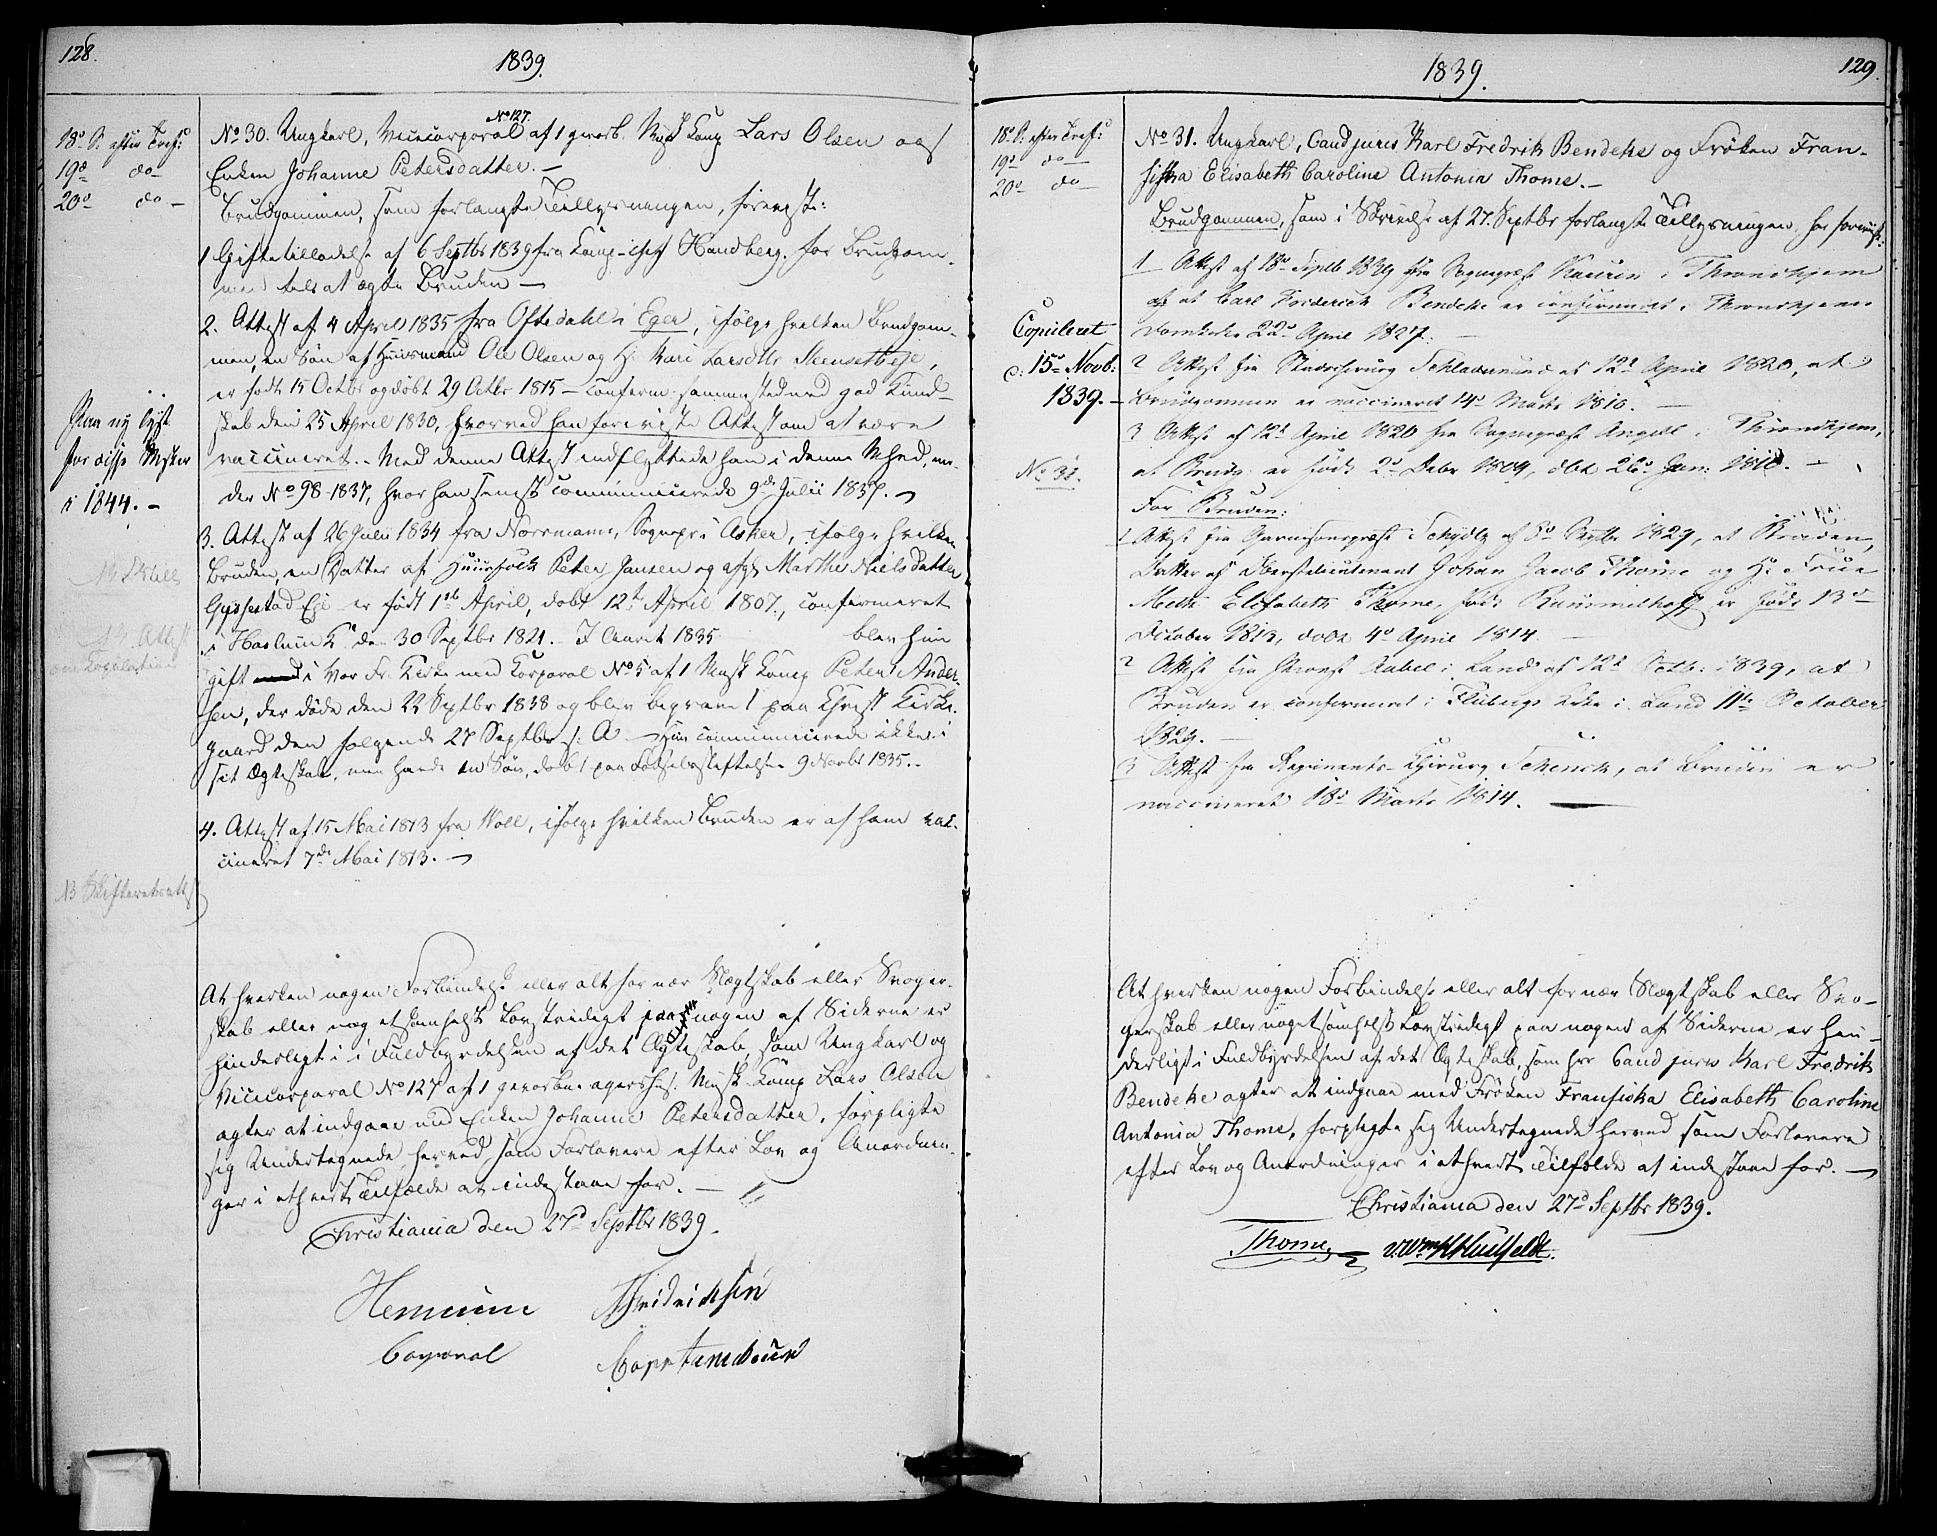 128.
1839.
18d S. efter Tref:
19d do
20d do
No 30. Ungkarl, Vicecorporal No 127. af 1 gevorb. Musk Comp Lars Olsen og
Enken Johanne Petersdatter. —
Brudgommen, som forlangte Tillysningen, foreviste:
1 Giftetilladelse af 6 Septbr 1839 fra Comp-chef Handberg, for Brudgom-
men til at ægte Bruden —
2. Attest af 4 April 1835 fra Oftedahl i Eger, ifølge hvilken Brudgom-
men, en Søn af Huusmand Ole Olsen og H: Kari Larsdttr Steensetteje,
er født 15 Octbr og døbt 29 Octbr 1815 — conferm. sammested med god Kund-
skab den 25 April 1830, hvorved han foreviste Attest om at være
vaccineret. — Med denne Attest indflyttede han i denne Mhed, un-
der No 98-1837, hvor han senest communicerede 9de Julii 1837. —
Paa ny lyst
for disse Msker
i 1844. —
3. Attest af 26 Juli 1834 fra Norrmann, Sognepr i Asker, ifølge hvilken
Bruden, en Datter af Huusfolk Peter Jansen og afgl. Marthe Nielsdatter
Gyssestad Eje er født 1ste April, døbt 12te April 1807, confermeret
i Haslum K. den 30 Septbr 1821. — I Aaret 1835 blev hun
gift i Vor Fr. Kirke med Corporal No 5 af 1 Musk Comp Peter Ander-
sen, der døde den 22 Septbr 1838 og blev begravet paa Christ Kirke-
gaard den følgende 27 Septbr s: A — Hun communicerede ikke i
sit Ægteskab, men havde en Søn, døbt paa Fødselsstiftelsen 9 Novbr 1835. —
NB Attest
om Copulation
4. Attest af 15 Mai 1813 fra Woll, ifølge hvilken Bruden er af ham vac-
cineret 7de Mai 1813. —
NB Skifteretsattest
At hverken nogen Forbindelse eller alt for nær Slægtskab eller Svoger-
skab eller noget somhelst Lovstridigt paa nogen af Siderne er
hinderligt i i Fuldbyrdelsen af det Ægteskab, som Ungkarl og
Vicecorporal No 127 af 1 gevorbne agershs. Musk Comp Lars Olsen
agter at indgaae med Enken Johanne Petersdatter, forpligte
sig Undertegnede herved som Forlovere efter Lov og Anordnin-
ger i ethvert Tilfælde at indestaae for. —
Christiania den 27d Septbr 1839.
Fridrichsen
Corporal
129.
1839.
18d S. efter Tref:
19d do
20d do
No 31. Ungkarl, Cand juris Karl Fredrik Bendeke og Frøken Fran-
siska Elisabeth Caroline Antonia Thome. —
Brudgommen, som i Skrivelse af 27. Septbr forlangte Tillysningen, har foreviist:
1 Attest af 18d Septb 1839 fra Sognepræst i Throndhjem
at Carl Friderich Bendeke er confirmeret i Throndhjems
Domkirke 22d April 1827. —
Copuleret
d: 15d Novb:
1839. —
2 Attest fra Stadschirurg af 12d April 1820, at
Brudgommen er vaccineret 14d Marts 1810. —
3 Attest af 12d April 1820 fra Sognepræst Angell i Throndhjem,
at Brudg. er født 2d Debr 1809, døbt 26d Jan: 1810. —
No 31.
For Bruden:
1 Attest fra Garnisonspræst Schydtz af 3d Septbr 1829, at Bruden,
Datter af Oberstlieutenant Johan Jacob Thome og H: Frue
Mette Elisabeth Thome, født Rummelhoff er født 13d
October 1813, døbt 4d April 1814. —
2 Attest fra Provst Aabel i Land af 12d Septb: 1839, at
Bruden er confirmeret i Fluberg Kirke i Land 11te October
1829. —
3 Attest fra Regiments-Chirurg Schenck, at Bruden er
vaccineret 18d Marts 1814. —
At hverken nogen Forbindelse eller alt for nær Slægtskab eller Svo-
gerskab eller noget somhelst Lovstridigt paa nogen af Siderne er hin-
derligt i Fuldbyrdelsen af det Ægteskab, som Hr Cand juris Karl Fredrik
Bendeke agter at indgaae med Frøken Fransiska Elisabeth Caroline
Antonia Thome, forpligte sig Undertegnede herved som Forlovere
efter Lov og Anordninger i ethvert Tilfælde at indestaae for. —
Christiania den 27d Septbr 1839.
Thome Huitfeldt.